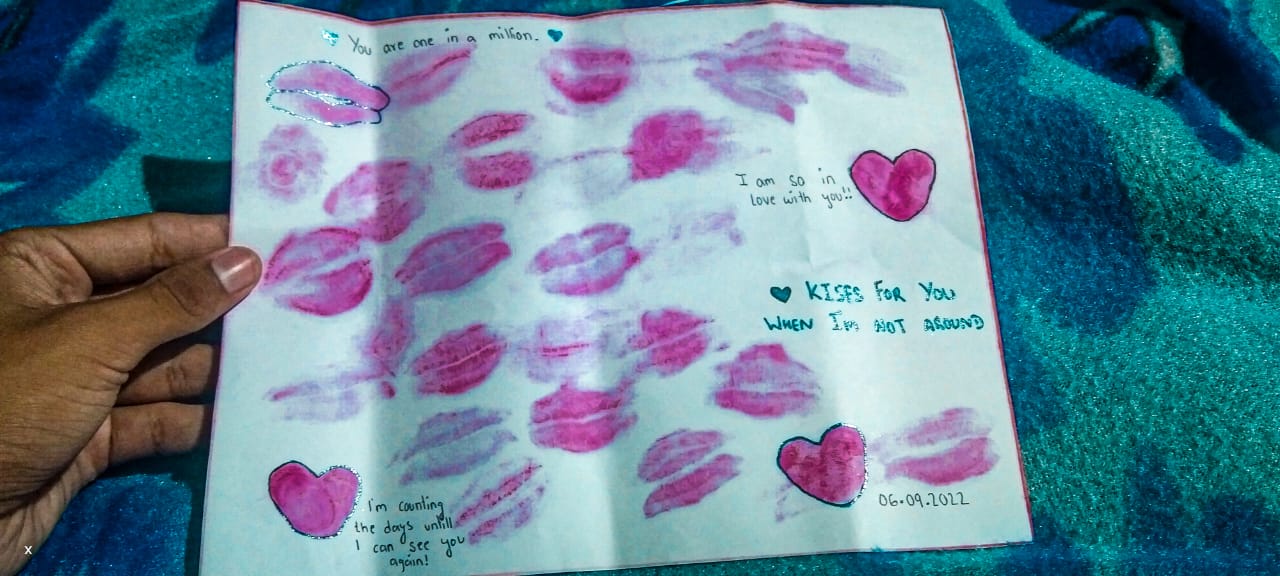 You are one in a million.
I am so in
love with you!!
KISES FOR YOU
WHEN I'm NOT AROUND
I'm counting
the days untill
I can see you
again!
06.09.2022
x